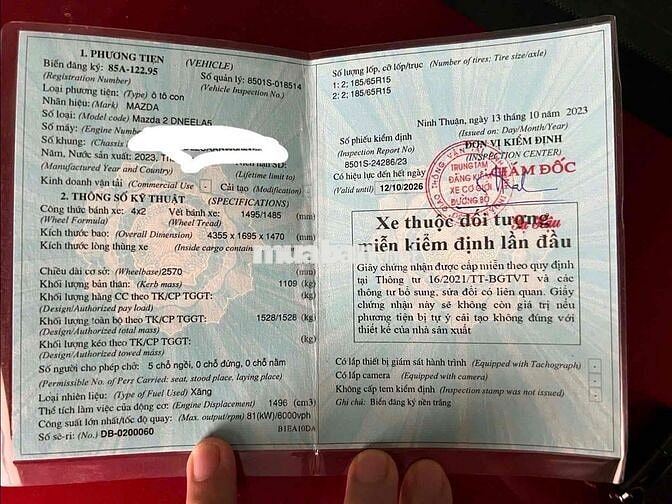 1. PHƯƠNG TIỆN (VEHICLE)
Biển đăng ký: 85A-122.95 Số quản lý: 8501S-018514
(Registration Number) (Vehicle Inspection No.)
Loại phương tiện: (Type) ô tô con
Nhãn hiệu: (Mark) MAZDA
Số loại: (Model code) Mazda 2 DNEELA5
Số máy: (Engine Number
Số khung: (Chassis
Năm, Nước sản xuất: 2023,
(Manufactured Year and Country) (Lifetime limit to)
Kinh doanh vận tải (Commercial Use - Cải tạo (Modification) -
2. THÔNG SỐ KỸ THUẬT (SPECIFICATIONS)
Công thức bánh xe: 4x2 Vết bánh xe: 1495/1485 (mm)
(Wheel Formula) (Wheel Tread)
Kích thước bao: (Overall Dimension) 4355 x 1695 x 1470 (mm)
Kích thước lòng thùng xe (Inside cargo container (mm)
Chiều dài cơ sở: (Wheelbase) 2570 (mm)
Khối lượng bản thân: (Kerb mass) 1109 (kg)
Khối lượng hàng CC theo TK/CP TGGT: (kg)
(Design/Authorized pay load)
Khối lượng toàn bộ theo TK/CP TGGT: 1528/1528 (kg)
(Design/Authorized total mass)
Khối lượng kéo theo TK/CP TGGT: (kg)
(Design/Authorized towed mass)
Số người cho phép chở: 5 chỗ ngồi, 0 chỗ đứng, 0 chỗ nằm
(Permissible No. of Pers Carried: seat, stood place, laying place)
Loại nhiên liệu: (Type of Fuel Used) Xăng
Thể tích làm việc của động cơ: (Engine Displacement) 1496 (cm3)
Công suất lớn nhất/tốc độ quay: (Max. output/rpm) 81(kW)/6000vph
Số sê-ri: (No.) DB-0200060 B1EA10DA
Số lượng lốp, cỡ lốp/trục (Number of tires; Tire size/axle)
1: 2; 185/65R15
2: 2; 185/65R15
Ninh Thuận, ngày 13 tháng 10 năm 2023
(Issued on: Day/Month/Year)
Số phiếu kiểm định ĐƠN VỊ KIỂM ĐỊNH
(Inspection Report No) (INSPECTION CENTER)
8501S-24286/23
Có hiệu lực đến hết ngày GIÁM ĐỐC
(Valid until) 12/10/2026
TRUNG TÂM
ĐĂNG KIỂM
XE CƠ GIỚI
ĐƯỜNG BỘ
Xe thuộc đối tượng
miễn kiểm định lần đầu
Giấy chứng nhận được cấp miễn theo quy định
tại Thông tư 16/2021/TT-BGTVT và các
thông tư bổ sung, sửa đổi có liên quan. Giấy
chứng nhận này sẽ không còn giá trị nếu
phương tiện bị tự ý cải tạo không đúng với
thiết kế của nhà sản xuất
Có lắp thiết bị giám sát hành trình (Equipped with Tachograph) -
Có lắp camera (Equipped with camera) -
Không cấp tem kiểm định (Inspection stamp was not issued) -
Ghi chú: Biển đăng ký nền trắng